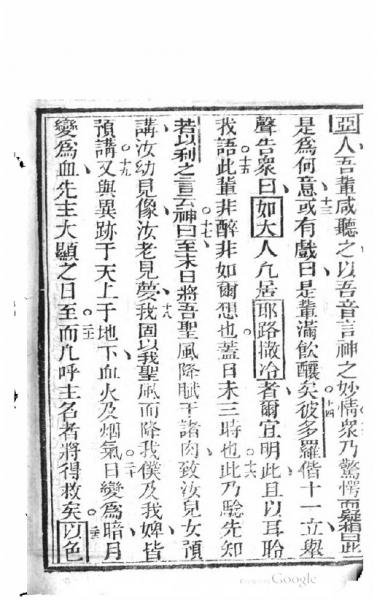 亞人吾輩咸聽之以吾音言神之妙情衆乃驚愕而癡曰此
十三
是為何意或有戲曰是輩滿飲釀矣彼多羅偕十一立舉
十四
聲告衆曰如大人凡居耶路撒冷者爾宜明此且以耳聆
十五
我語此輩非醉非如爾想也蓋日未三時也此乃驗先知
十六
若以利之言云神曰至末日將吾聖風降賦于諸肉致汝兒女預
十七
講汝幼見像汝老見夢我固以我聖風而降我僕及我婢皆
十八
預講又與異跡于天上于地下血火及烟氣日變為暗月
十九
二十
變為血先主大顯之日至而凡呼主名者將得救矣以色
二一
二二
Google